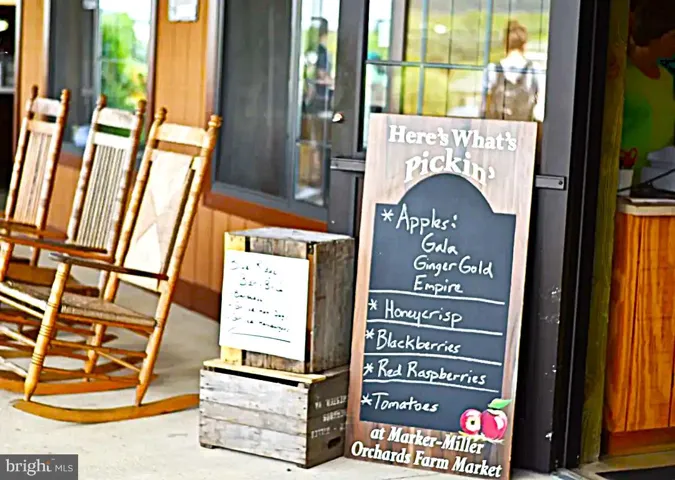 Here's What's
Pickin'
* Apples:
Gala
Ginger Gold
Empire
* Honeycrisp
* Blackberries
* Red Raspberries
* Tomatoes
at Marker-Miller
Orchards Farm Market
bright MLS